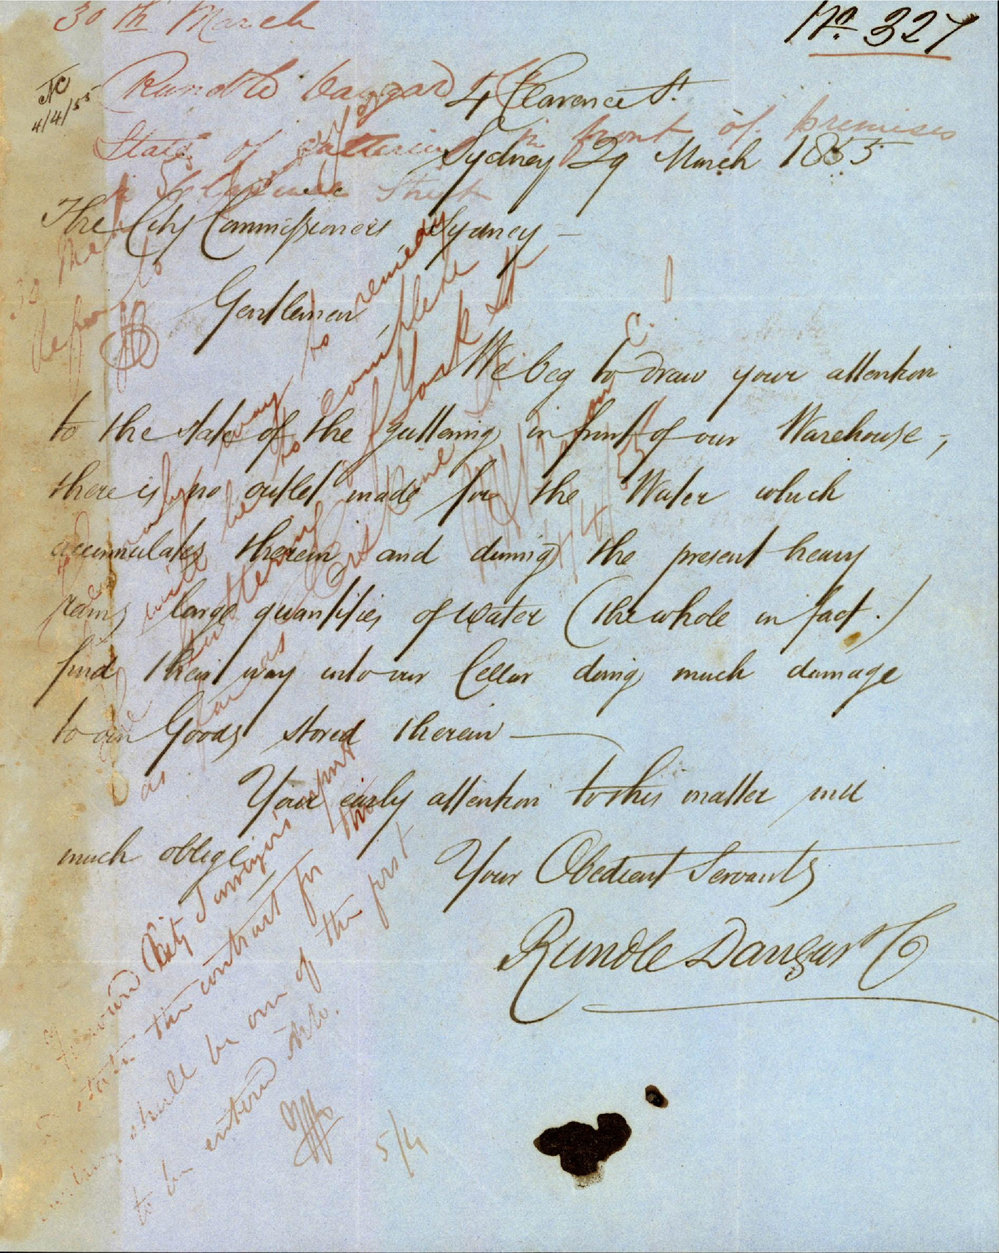 30th March
No. 327
Rundle Dangar & Co
JC
4/4/55
4 Clarence St.
State of Guttering in front of premises
Sydney 29 March 1855
in Clarence Street
The City Commissioners Sydney –
Gentlemen,
We beg to draw your attention
to the state of the guttering in front of our Warehouse,
there is no outlet made for the Water which
accumulates therein and during the present heavy
rains large quantities of water (the whole in fact.)
find their way into our Cellar doing much damage
to our Goods stored therein —
Your early attention to this matter will
much oblige
Your Obedient Servants
Rundle Dangar & Co
30 Mar
Refer to
only way to remedy
will be to complete
guttering of York St
as far as Erskine St
4/4/55
Forward City Surveyor's report
state the contract for this
shall be one of the first
to be entered into.
5/4